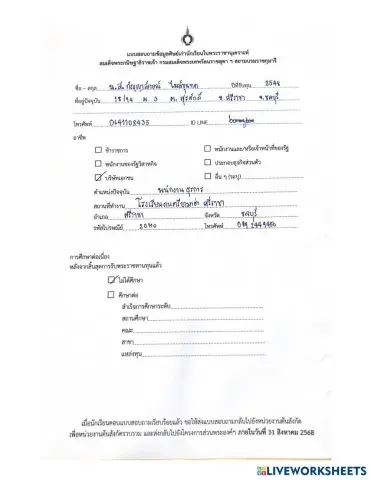 แบบสอบถามข้อมูลศิษย์เก่านักเรียนในพระราชานุเคราะห์
สมเด็จพระกนิษฐาธิราชเจ้า กรมสมเด็จพระเทพรัตนราชสุดาฯ สยามบรมราชกุมารี
ชื่อ – สกุล น.ส. ปีที่รับทุน 2544
ที่อยู่ปัจจุบัน ม. 3 ต. สุรศักดิ์ อ. ศรีราชา จ. ชลบุรี
โทรศัพท์ ID LINE
อาชีพ
ข้าราชการ พนักงานและ/หรือเจ้าหน้าที่ของรัฐ
พนักงานของรัฐวิสาหกิจ ประกอบธุรกิจส่วนตัว
บริษัทเอกชน อื่น ๆ (ระบุ)
ตำแหน่งปัจจุบัน พนักงาน ธุรการ
สถานที่ทำงาน ศรีราชา
อำเภอ ศรีราชา จังหวัด ชลบุรี
รหัสไปรษณีย์ โทรศัพท์
การศึกษาต่อเนื่อง
หลังจากสิ้นสุดการรับพระราชทานทุนแล้ว
ไม่ได้ศึกษา
ศึกษาต่อ
สำเร็จการศึกษาระดับ
สถานศึกษา
คณะ
สาขา
แหล่งทุน
เมื่อนักเรียนตอบแบบสอบถามเรียบร้อยแล้ว ขอให้ส่งแบบสอบถามกลับไปยังหน่วยงานต้นสังกัด
เพื่อหน่วยงานต้นสังกัดรวบรวม และส่งกลับไปยังโครงการส่วนพระองค์ฯ ภายในวันที่ 31 สิงหาคม 2568
LIVEWORKSHEETS